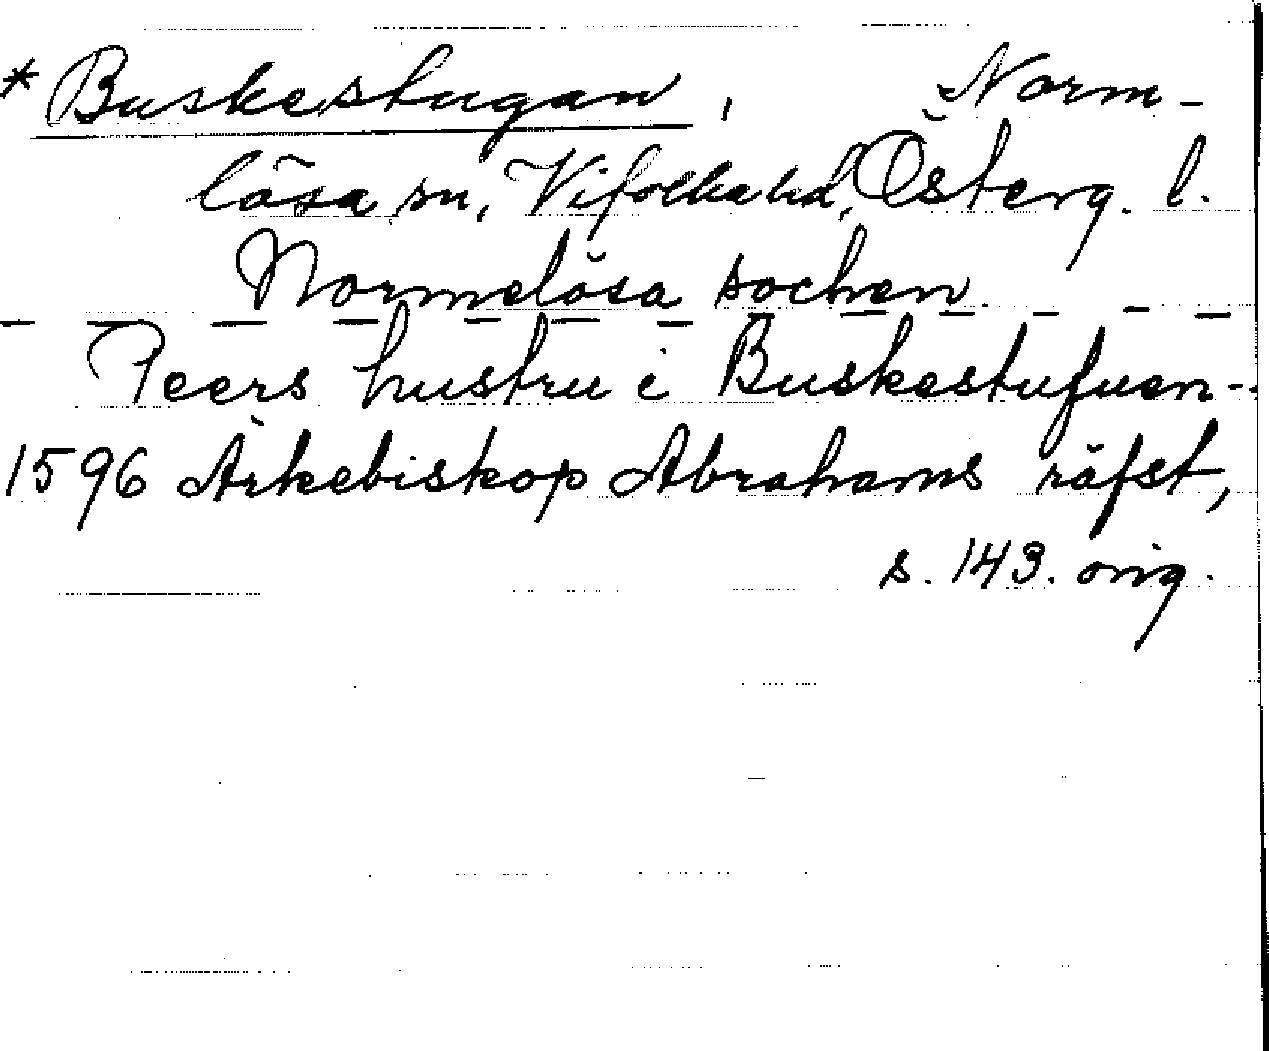 *Buskestugan, Norm-
lösa sn, Vifolka hd, Österg. l.
Normelösa sochen. _ _ _
Peers hustru i Buskestufuen--
1596 Ärkebiskop Abrahams räfst,
s. 143. orig.